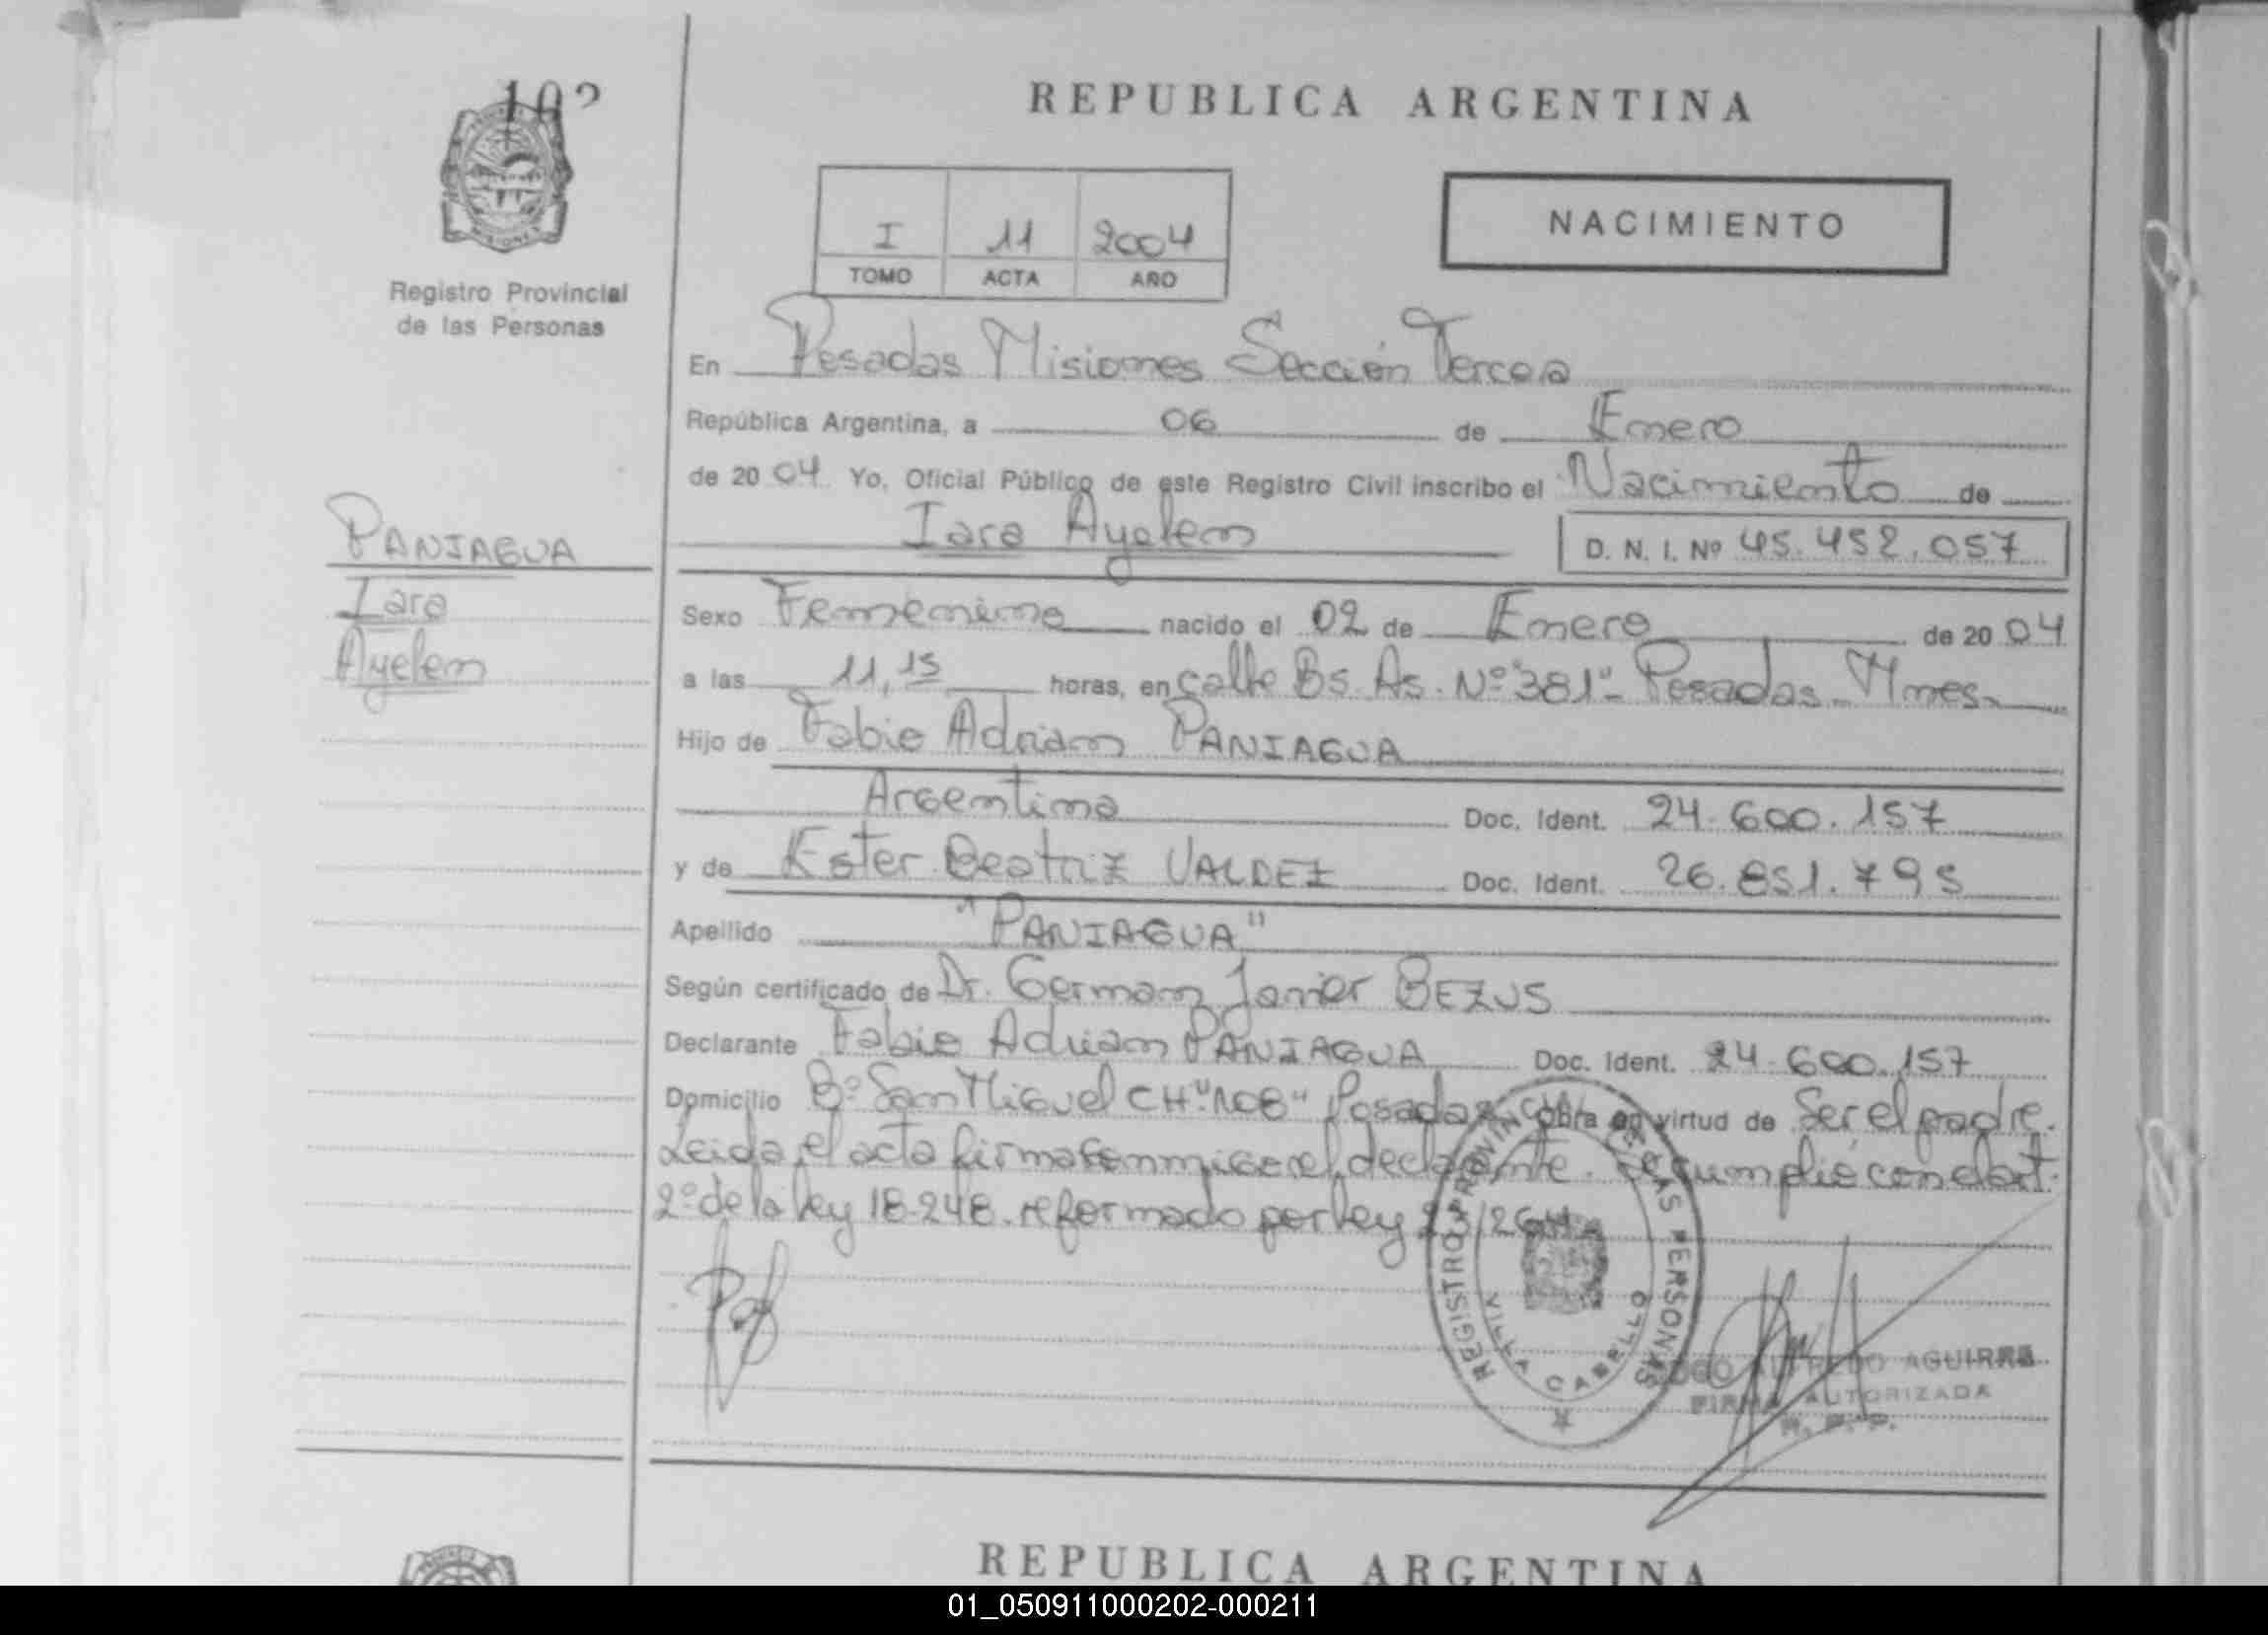 102
REPUBLICA ARGENTINA
MISIONES
Registro Provincial
de las Personas
I 11 2004
TOMO ACTA AÑO
NACIMIENTO
En Posadas Misiones Sección Tercera
República Argentina, a 06 de Enero
de 20 04 Yo, Oficial Público de este Registro Civil inscribo el Nacimiento de
Iara Ayelem
D. N. I. Nº 45.452.057
PANIAGUA
Iara
Ayelem
Sexo Femenino nacido el 02 de Enero de 20 04
a las 11,15 horas, en calle Bs. As. Nº "381" Posadas Mnes.
Hijo de Fabio Adrian PANIAGUA
Argentina Doc. Ident. 24.600.157
y de Ester Beatriz VALDEZ Doc. Ident. 26.851.795
Apellido "PANIAGUA"
Según certificado de Dr. German Javier BEZUS
Declarante Fabio Adrian PANIAGUA Doc. Ident. 24.600.157
Domicilio Bº San Miguel CH "108" Posadas Obra en virtud de Ser el padre.
Leida el acta firma conmigo el declarante. Se cumplió con el art.
2º de la ley 18.248. reformado por ley 23/264
REGISTRO PROVINCIAL DE LAS PERSONAS
VILLA CABELLO
AGUIRRE
FIRMA AUTORIZADA
R. P. P.
REPUBLICA ARGENTINA
01_050911000202-000211